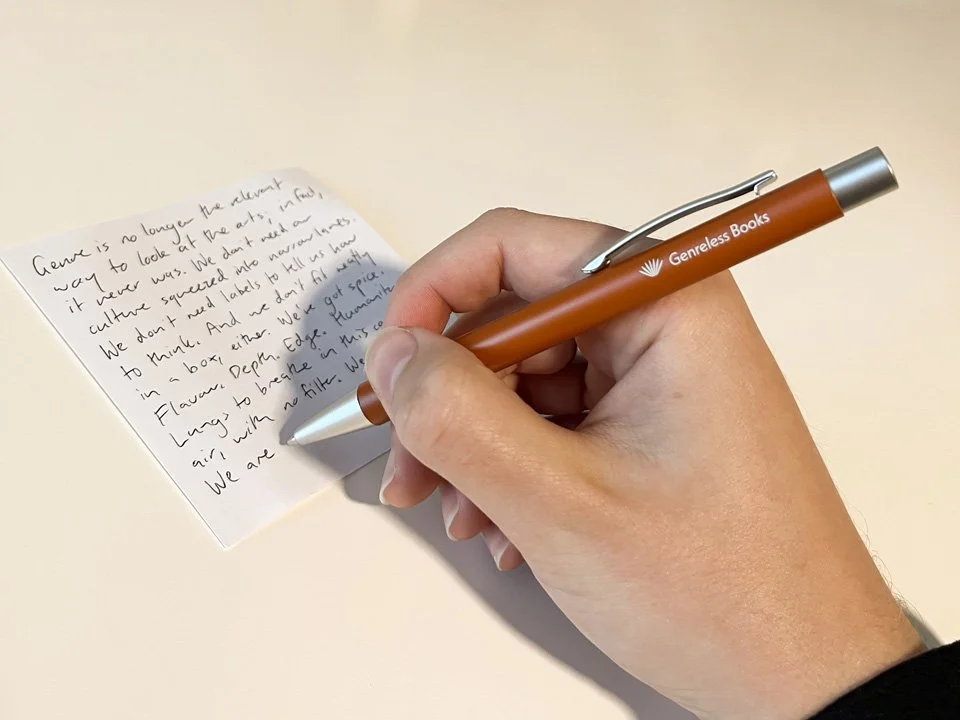 Genre is no longer the relevant
way to look at the arts; in fact,
it never was. We don't need our
culture squeezed into narrow lanes.
We don't need labels to tell us how
to think. And we don't fit neatly
in a box, either. We've got spice.
Flavour. Depth. Edge.
Lungs to breathe in this
air, with no filter. We
We are
Genreless Books